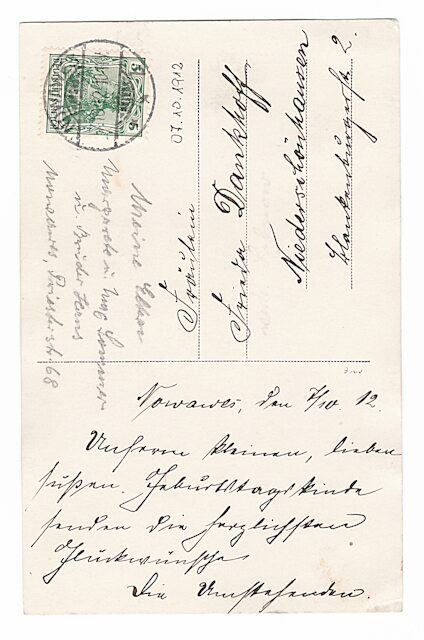 5 5
07.10.1912
Fräulein
Frieda Dankhoff
Niederschönhausen
Blankenburgerstr. 2.
Meine Eltern
Margarete u. Max
u. Bruder Hans
Nowawes, Priesterstr. 68
Nowawes, den 7/10. 12.
Unserm kleinen, lieben
süßen Geburtstagskinde
senden die herzlichsten
Glückwünsche
Die Umstehenden.